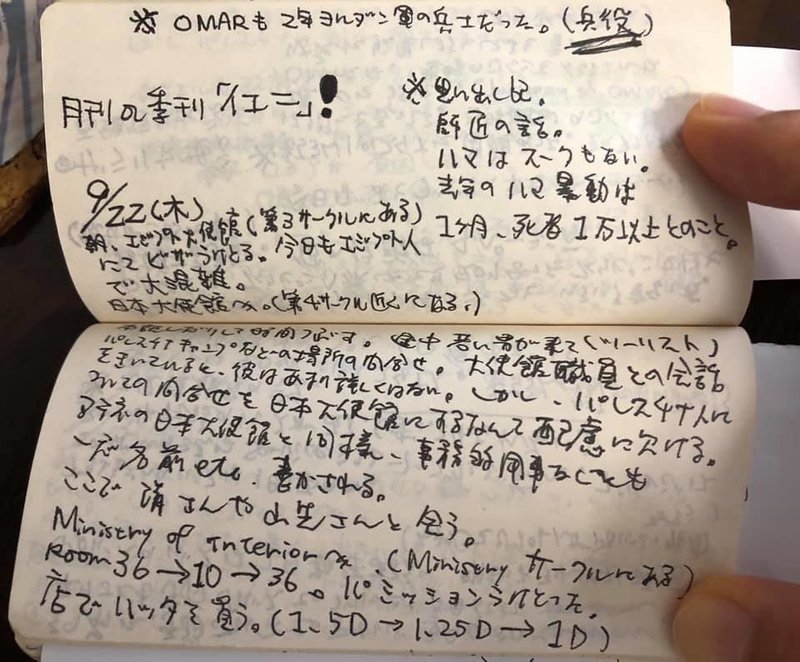 ※ OMARも2年ヨルダン軍の兵士だった。(兵役)
月刊の季刊「イエニ」!
※思い出し記。
師匠の話。
ハマはスークもない。
去年のハマ暴動は
1ヶ月、死者1万以上とのこと。
9/22(木)
朝、エジプト大使館(第3サークルにある)
にてビザうけとる。今日もエジプト人
で大混雑。
日本大使館へ。(第4サークル近くにある。)
して時間つぶす。途中若い男が来て(ツーリスト)
パレスチナキャンプなどの場所の問合せ。大使館職員との会話
をきいていると、彼はあまり詳しくはない。しかし、パレスチナ人に
ついての問合せを日本大使館にするなんて配慮に欠ける。
アテネの日本大使館と同様、事務的用事なくとも
名前etc.書かされる。
ここで さんや さんと会う。
Ministry of interiorへ。(Ministryサークルにある)
Room36→10→36。パミッションうけとった。
店でハッタを買う。(1.5D→1.25D→1D)